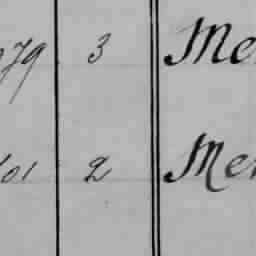 279 3 Me
101 2 Me